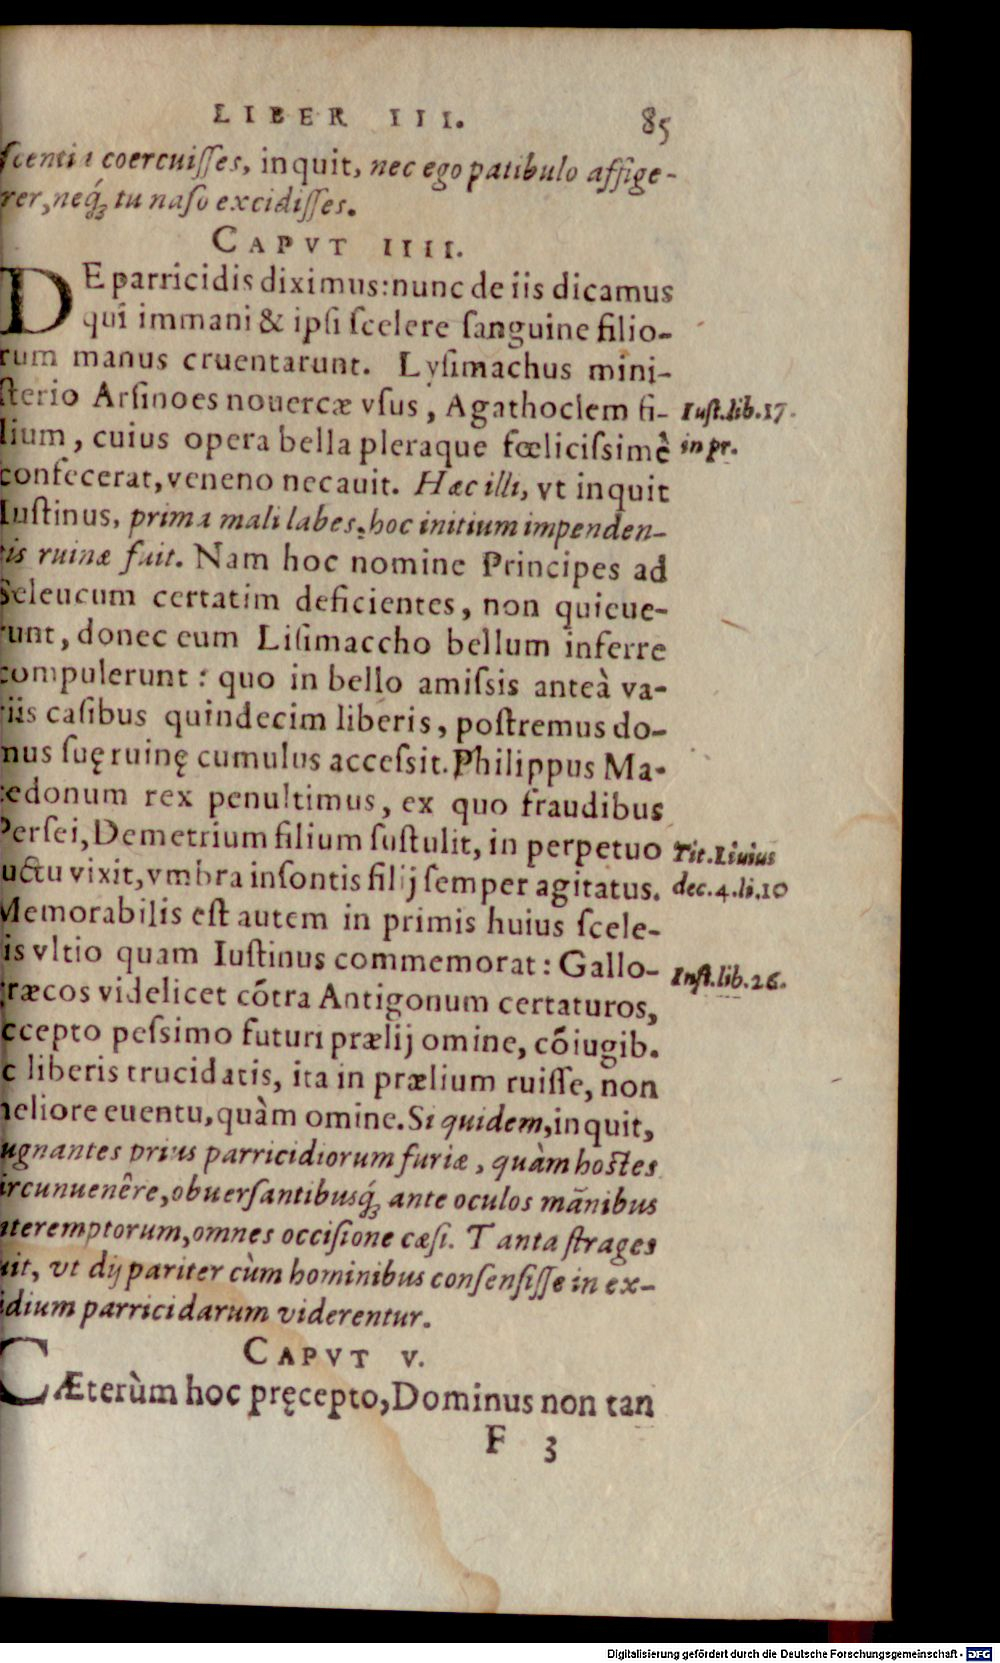 LIBER III. 85
scentia coercuisses, inquit, nec ego patibulo affige-
rer, neq́ꝫ tu naso excidisses.
CAPVT IIII.
DE parricidis diximus: nunc de iis dicamus
qui immani & ipsi scelere sanguine filio-
rum manus cruentarunt. Lysimachus mini-
sterio Arsinoes nouercæ vsus, Agathoclem fi- Iust. lib. 17.
lium, cuius opera bella pleraque fœlicissimè in pr.
confecerat, veneno necauit. Hæc illi, vt inquit
Iustinus, prima mali labes, hoc initium impenden-
tis ruinæ fuit. Nam hoc nomine Principes ad
Seleucum certatim deficientes, non quieue-
runt, donec eum Lisimaccho bellum inferre
compulerunt: quo in bello amissis anteà va-
riis casibus quindecim liberis, postremus do-
mus suę ruinę cumulus accessit. Philippus Ma-
cedonum rex penultimus, ex quo fraudibus
Persei, Demetrium filium sustulit, in perpetuo Tit. Liuius
luctu vixit, vmbra insontis filij semper agitatus. dec. 4. li. 10
Memorabilis est autem in primis huius scele-
ris vltio quam Iustinus commemorat: Gallo- Iust. lib. 26.
græcos videlicet cõtra Antigonum certaturos,
accepto pessimo futuri prælij omine, cõiugib.
ac liberis trucidatis, ita in prælium ruisse, non
meliore euentu, quàm omine. Si quidem, inquit,
pugnantes prius parricidiorum furiæ, quàm hostes
circunuenêre, obuersantibusq́ꝫ ante oculos mãnibus
interemptorum, omnes occisione cæsi. Tanta strages
fuit, vt dij pariter cùm hominibus consensisse in ex-
cidium parricidarum viderentur.
CAPVT V.
CÆterùm hoc pręcepto, Dominus non tan
F 3
Digitalisierung gefördert durch die Deutsche Forschungsgemeinschaft - DFG